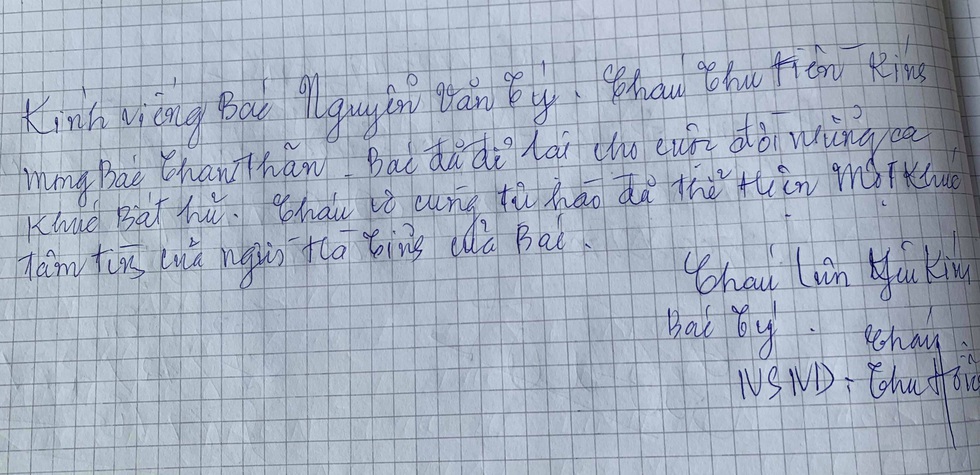 Kính viếng Bác Nguyễn Văn Tý. Cháu Thu Hiền Kính
mong Bác Thanh Thản. Bác đã để lại cho cuộc đời những ca
khúc Bất hủ. Cháu vô cùng tự hào đã thể hiện một Khúc
tâm tình của người Hà Tĩnh của Bác.
Cháu luôn yêu Kính
Bác Tý. Cháu.
NSND: Thu Hiền